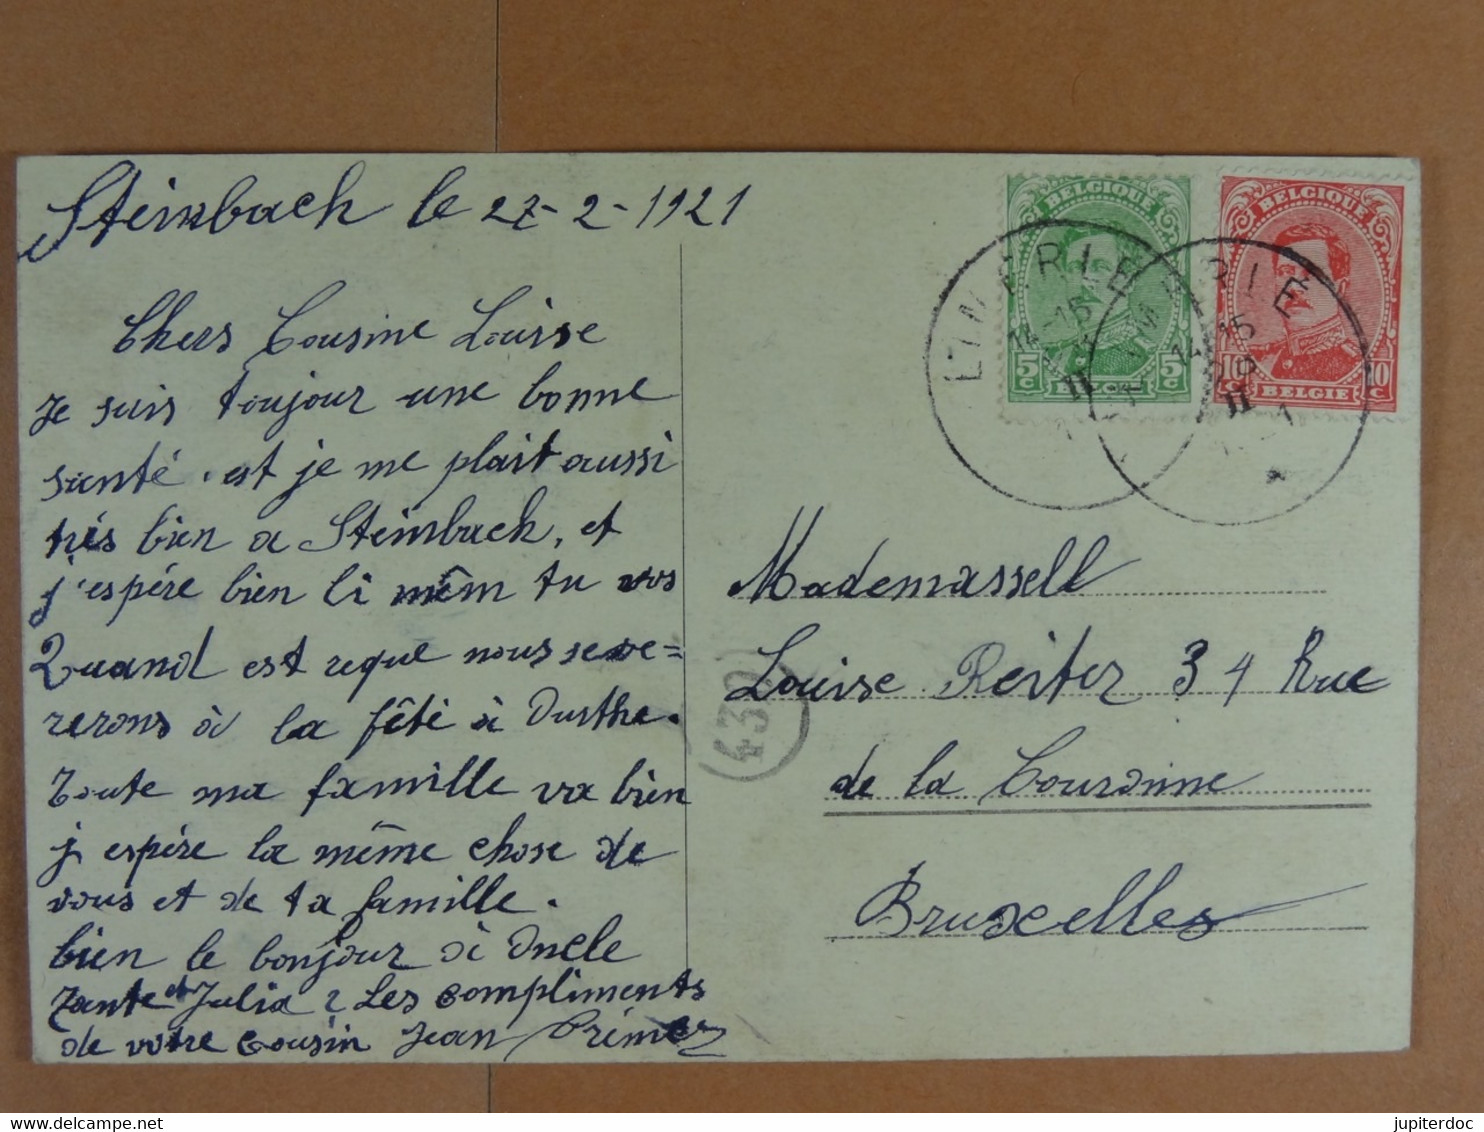 Steinbach le 27-2-1921
Chers Cousine Louise
Je suis toujour une bonne
santé. et je me plait aussi
très bien a Steinbach, et
j'espére bien li mêm tu vos
Quand est reque nous seve=
rerons à la fêtè à Ourthe.
Toute ma famille va bien
j espére la même chose de
vous et de ta famille.
bien le bonjour à Oncle
Tante et Julia 2 Les compliments
de votre Cousin Jean Prémer
BELGIQUE
5c 5c
BELGIE
BELGIQUE
10c 10c
BELGIE
LIMERLÉ
14-15
II
LIMERLÉ
14-15
II
430
Mademassell
Louise Reiter 34 Rue
de la Couronne
Bruxelles
jupiterdoc